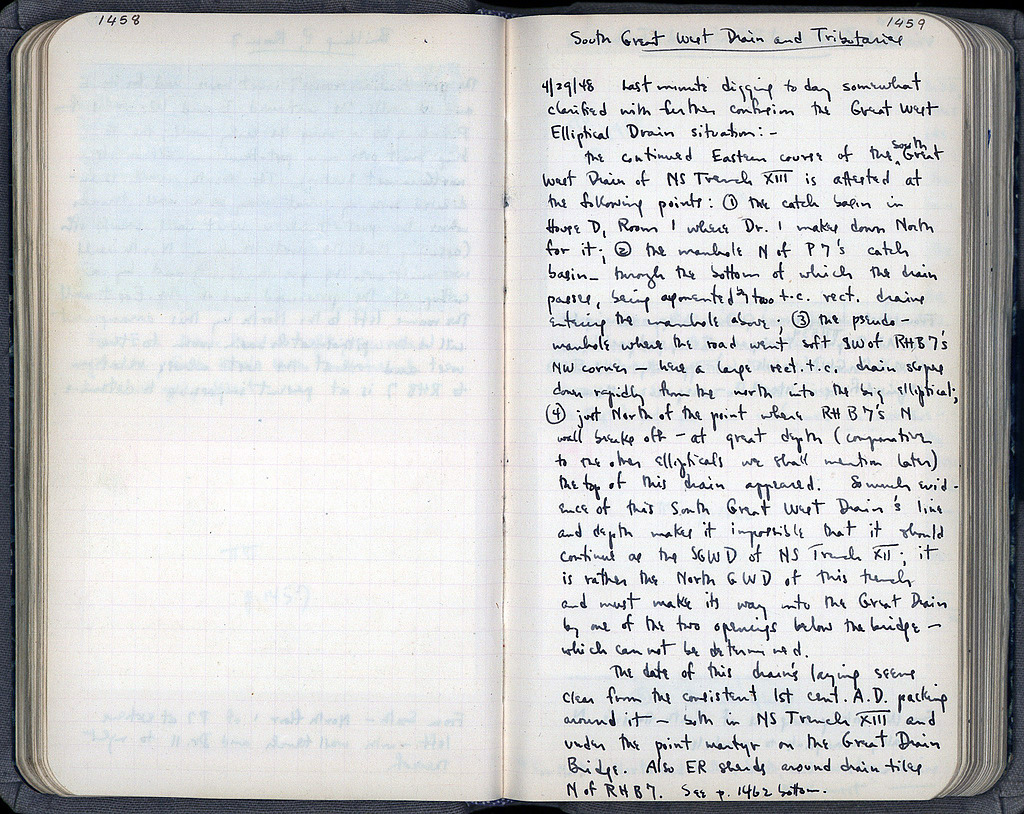 1458
1459
South Great West Drain and Tributaries
4/29/48 Last minute digging to day somewhat
clarified with further confusion the Great West
Elliptical Drain situation:-
The continued Eastern course of the South Great
West Drain of NS Trench XIII is attested at
the following points: ① the catch basin in
House D, Room 1 where Dr. 1 makes down North
for it; ② the manhole N of P 7's catch
basin - through the bottom of which the drain
passes, being two t.c. rect. drains
entering the manhole above; ③ the pseudo-
manhole where the road went soft SW of RHB7's
NW corner - here a large rect. t.c. drain slopes
down rapidly from the north into the big elliptical;
④ just North of the point where RHB7's N
wall breaks off - at great depth (comparative
to the other ellipticals we shall mention later)
the top of this drain appeared. So much evid-
ence of this South Great West Drain's line
and depth makes it impossible that it should
continue as the SGWD of NS Trench XII; it
is rather the North GWD of this trench
and must make its way into the Great Drain
by one of the two openings below the bridge -
which can not be determined.
The date of this drain's laying seems
clear from the consistent 1st cent. A.D. packing
around it - both in NS Trench XIII and
under the point on the Great Drain
Bridge. Also ER sherds around drain tiles
N of RHB7. See p. 1462 bottom.